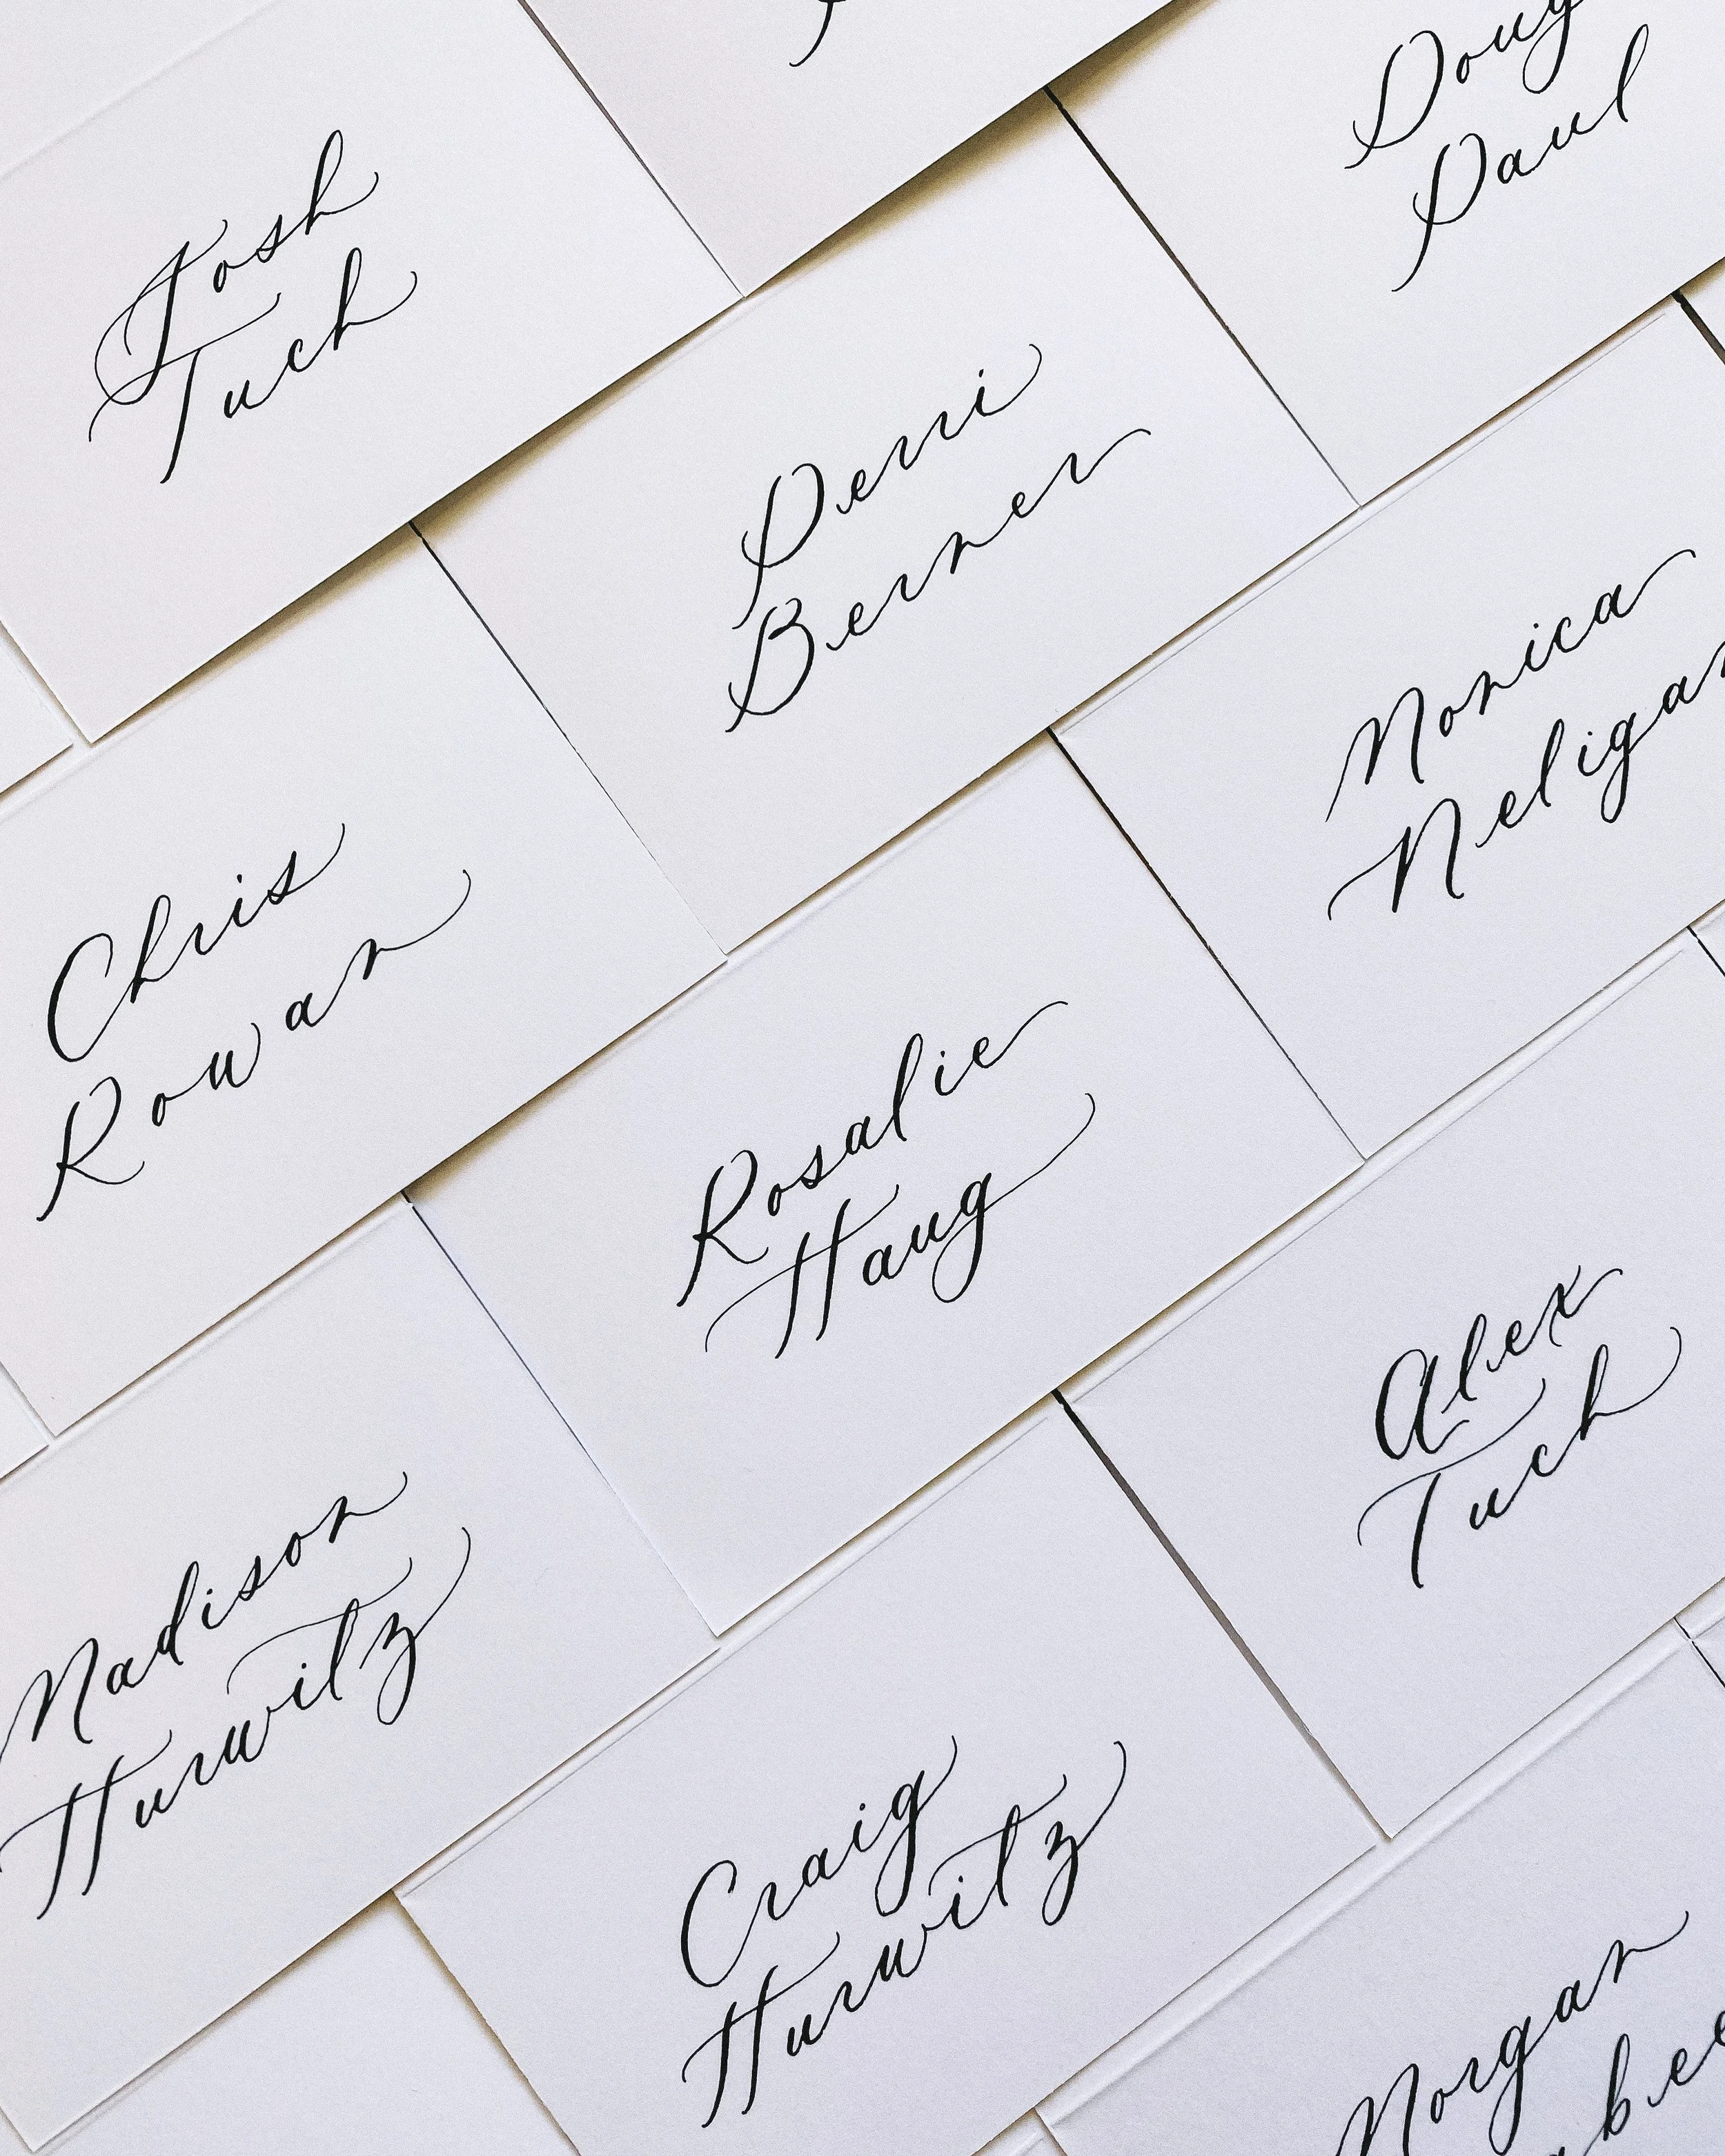 Josh
Tuch
Doug
Paul
Perri
Berner
Monica
Neligan
Chris
Rowan
Rosalie
Haug
Alex
Tuch
Madison
Hurwitz
Craig
Hurwitz
Morgan